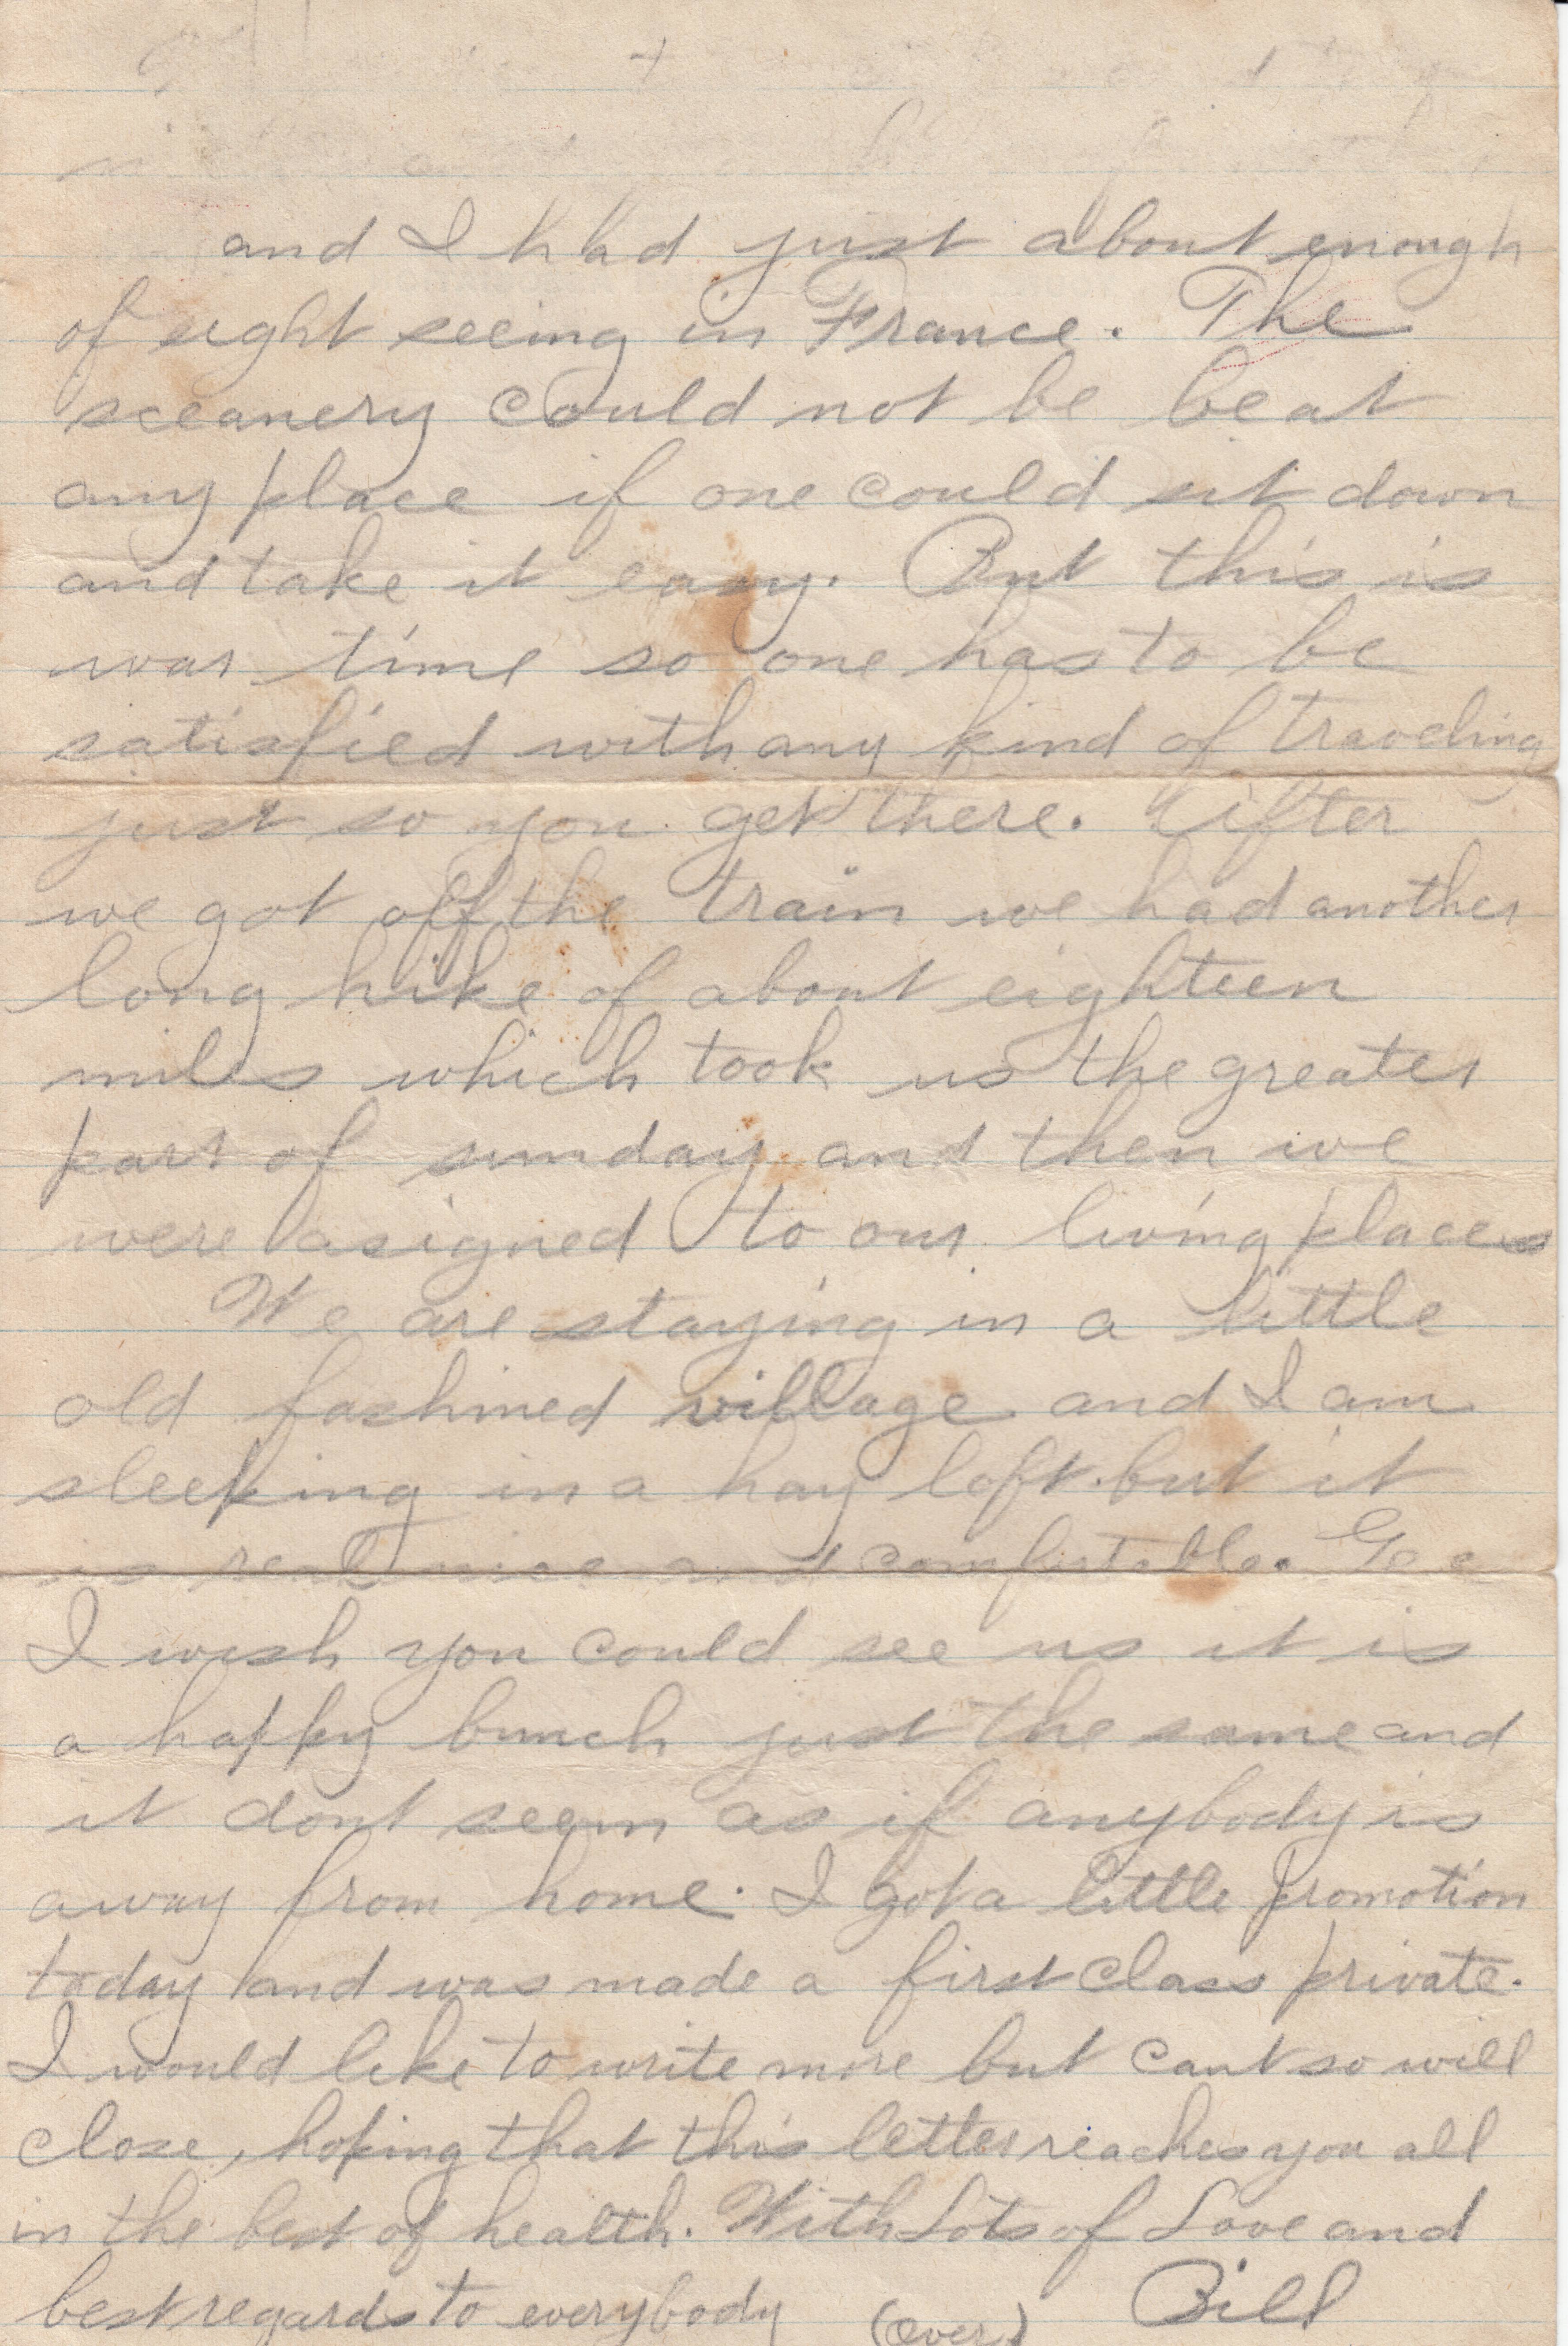 and I had just about enough
of sight seeing in France. The
sceanery could not be beat
any place if one could sit down
and take it easy. But this is
war time so one has to be
satisfied with any kind of traveling
just so you get there. After
we got off the train we had another
long hike of about eighteen
miles which took us the greater
part of sunday and then we
were asigned to our living places
We are staying in a little
old fashined village and I am
sleeping in a hay loft but it
is real nice and comfortable. Gee
I wish you could see us it is
a happy bunch just the same and
it dont seem as if anybody is
away from home. I got a little promotion
today and was made a first class private.
I would like to write more but cant so will
close, hoping that this letter reaches you all
in the best of health. With Lots of Love and
best regards to everybody (over) Bill